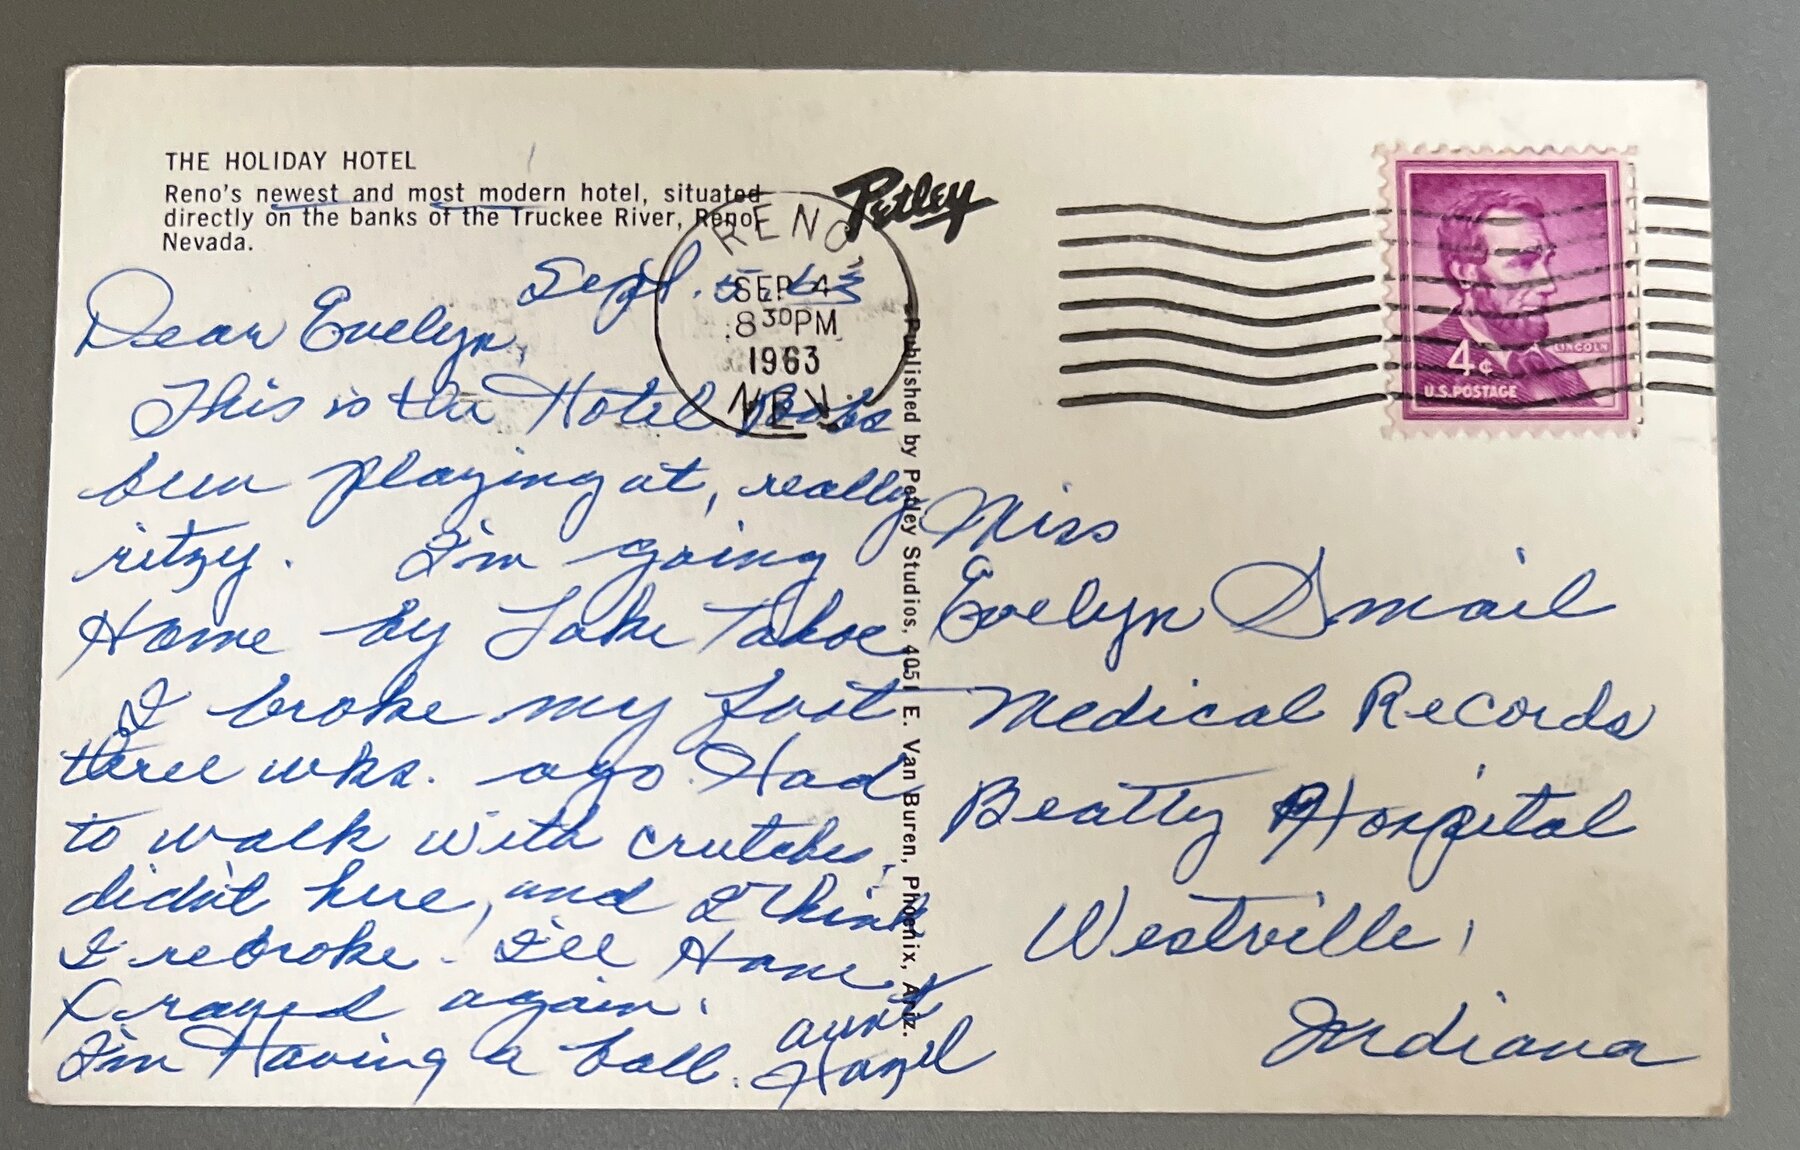 THE HOLIDAY HOTEL
Reno's newest and most modern hotel, situated
directly on the banks of the Truckee River, Reno,
Nevada.
Petley
RENO
SEP 4
8 30 PM
1963
NEV.
LINCOLN
4¢
U.S. POSTAGE
Sept. 5, 63
Dear Evelyn,
This is the Hotel
been playing at, really
ritzy. I'm going
Home by Lake Tahoe
I broke my foot
three wks. ago. Had
to walk with crutches,
didn't here, and I think
I rebroke. I'll Have
Xrayed again.
I'm Having a ball.
Aunt
Hazel
Published by Petley Studios, 4051 E. Van Buren, Phoenix, Ariz.
Miss
Evelyn Smail
Medical Records
Beatty Hospital
Westville,
Indiana